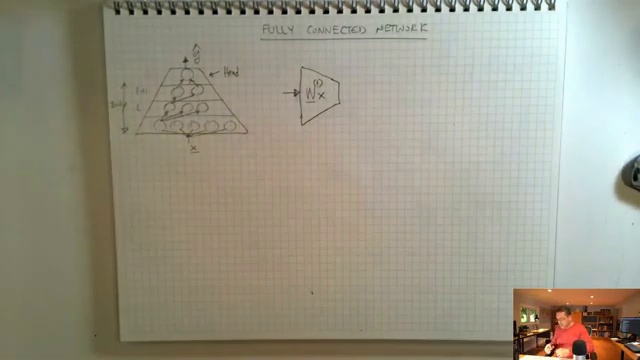 FULLY CONNECTED NETWORK
ŷ
Head
L
x
W⁽¹⁾x